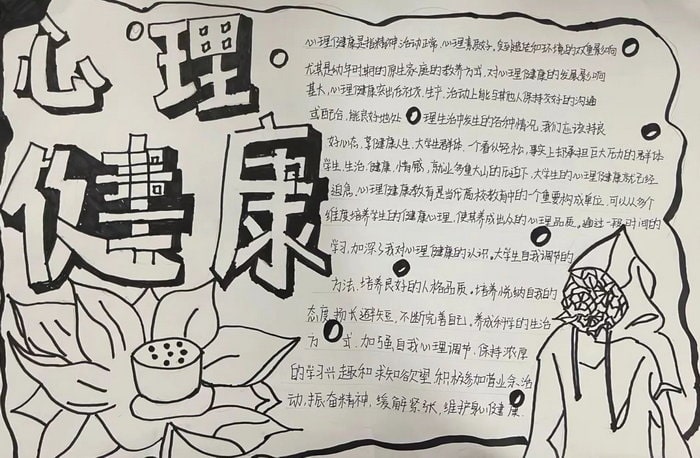 心理
健康
心理健康是指精神活动正常,心理素质好,受到遗传和环境的双重影响
尤其是幼年时期的原生家庭的教养方式,对心理健康的发展影响
甚大,心理健康突出在社交,生产,活动上能与其他人保持较好的沟通
或配合,能良好地处理生活中发生的各种情况,我们应该持良
好心态,享健康人生,大学生群体,一个看似轻松,事实上却承担巨大压力的群体
学生,生活,健康,情感,就业多重大山的压迫下,大学生的心理健康就已经
心理健康教育是当代高校教育中的一个重要构成单位,可以从多个
维度培养学生的健康心理,使其养成出人的心理品质。通过一段时间的
学习,加深了我对心理健康的认识。大学生自我调节的
方法,培养良好的人格品质。培养悦纳自我的
态度,扬长避短,不断完善自己。养成科学的生活
方式,加强自我心理调节,保持浓厚
的学习兴趣和求知欲望,积极参加业余活
动,振奋精神,缓解紧张,维护身心健康